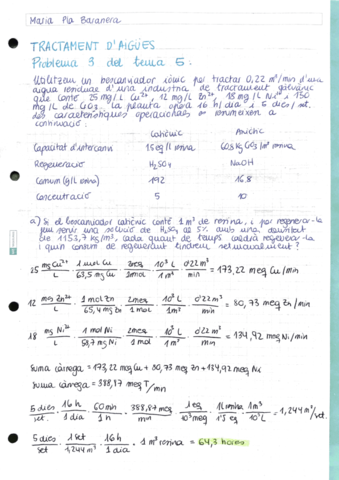 Maria Pla Baranera
TRACTAMENT D'AIGÜES
Problema 3 del tema 5:
Utilitzem un bescanviador iònic per tractar 0,22 m³/min d'una
aigua residual d'una indústria de tractament galvànic
que conté 25 mg/L Cu²⁺, 12 mg/L Zn²⁺, 18 mg/L Ni²⁺ i 150
mg/L de CrO₃. La planta opera 16 h/dia i 5 dies/set.
Les característiques operacionals
continuació:
Catiònic Aniònic
Capacitat d'intercanvi 1,5 eq/L resina CrO₃/m³ resina
Regeneració H₂SO₄ NaOH
Consum (g/L resina) 192 16.8
Concentració 5 10
a) Si el bescanviador catiònic conté 1 m³ de resina, i per regenerar-la
fem servir una solució de H₂SO₄ al 5% amb una densitat
de 1153,7 kg/m³, cada quant de temps caldrà regenerar-la
i quin consum de regenerant tindrem setmanalment?
25 mg Cu²⁺/L · 1 mol Cu/63,5 mg Cu · 2meq/1mol · 10³ L/1 m³ · 0'22 m³/min = 173,22 meq Cu/min
12 mg Zn²⁺/L · 1 mol Zn/65,4 mg Zn · 2meq/1 mol · 10³ L/1m³ · 0'22 m³/min = 80,73 meq Zn/min
18 mg Ni²⁺/L · 1 mol Ni/58,7 mg Ni · 2meq/1mol · 10³ L/1m³ · 0'22 m³/min = 134,92 meq Ni/min
Suma càrrega = 173,22 meq Cu + 80,73 meq Zn + 134,92 meq Ni
Suma càrrega = 388,87 meq T/min
5 dies/set. · 16 h/1 dia · 60min/1 h · 388,87meq/min · 1 eq/10³meq · 1L resina/1'5 eq · 1m³/10³ L = 1,244 m³/set.
5 dies/set · 1 set/1,244 m³ · 16 h/1 dia · 1 m³ resina = 64,3 hores